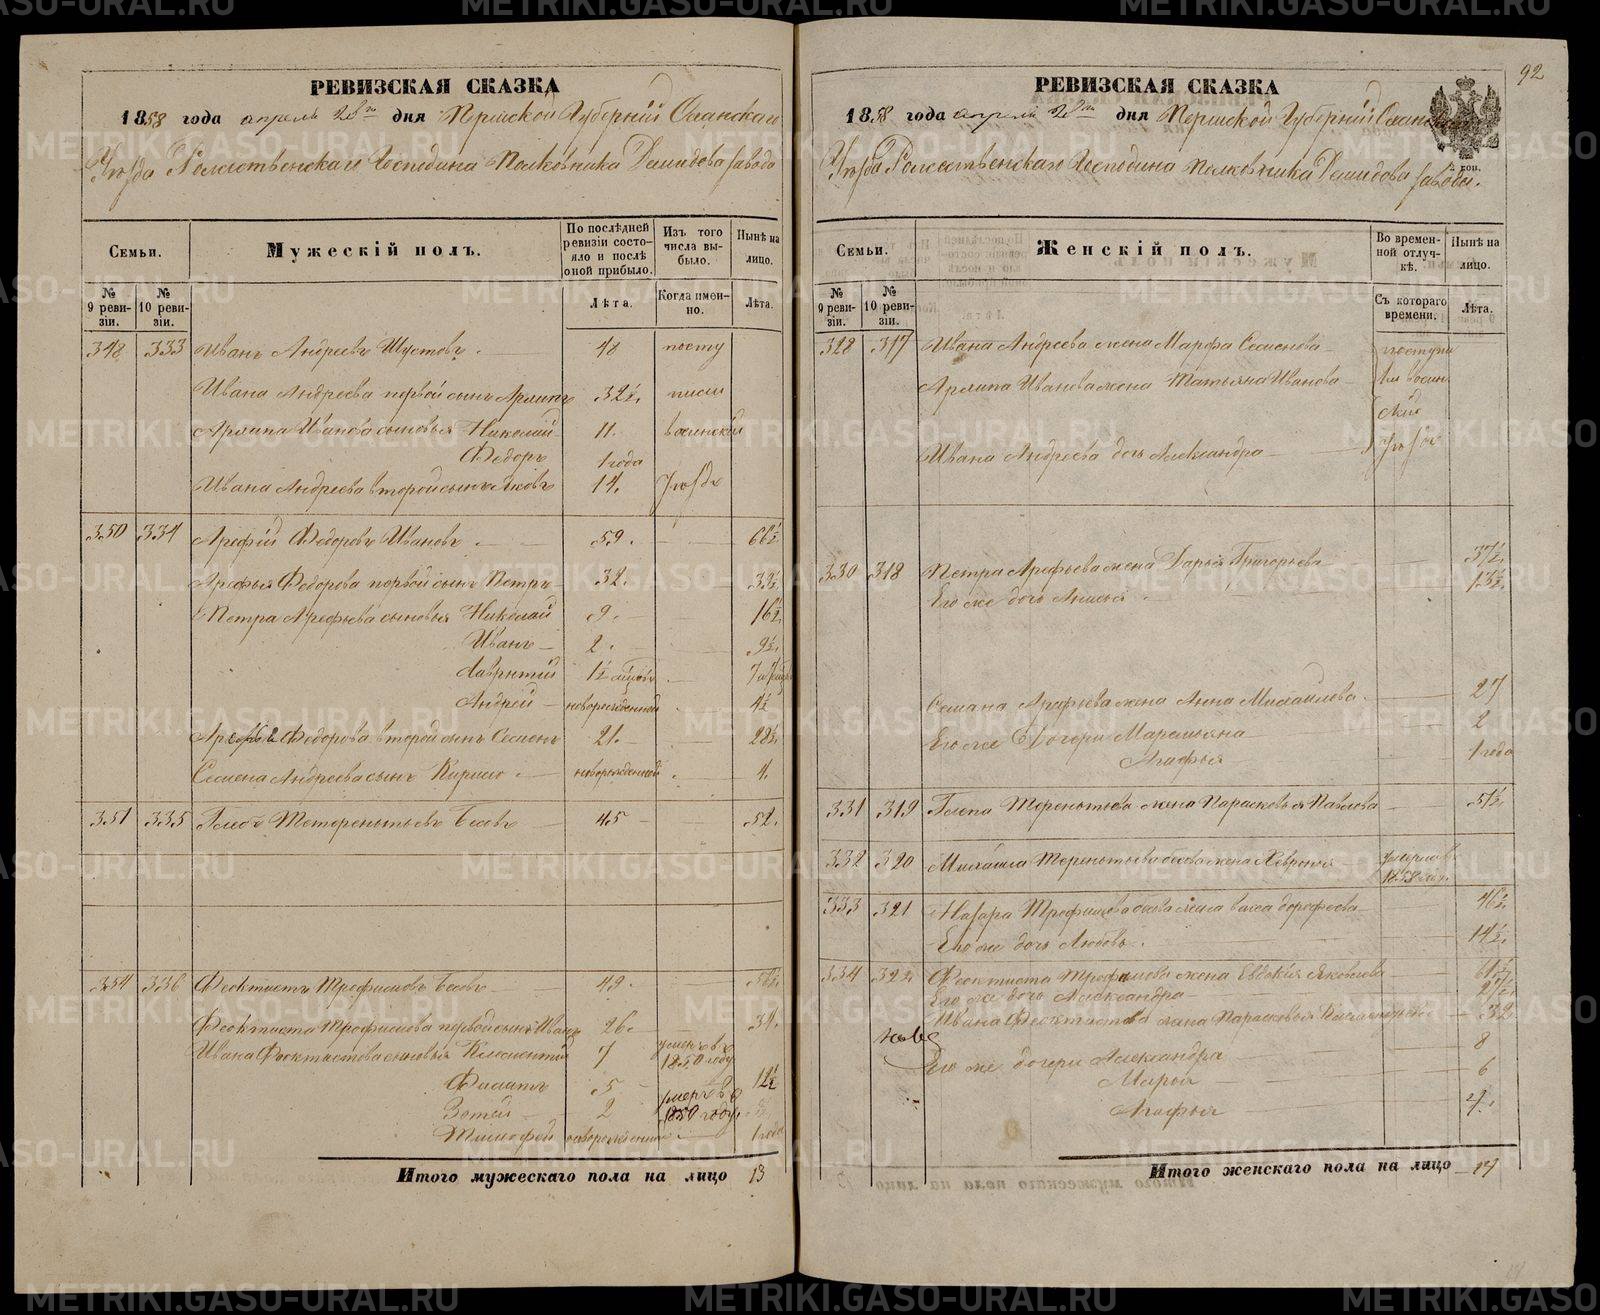 РЕВИЗСКАЯ СКАЗКА
1858 года апреля 28го дня Пермской Губернии Оханскаго
Уѣзда Рожественскаго Господина Полковника Демидова завода
Семьи.
Мужескій полъ.
По послѣдней ревизіи состояло и послѣ оной прибыло.
Изъ того числа выбыло.
Нынѣ на лицо.
№ 9 ревизіи.
№ 10 ревизіи.
Лѣта.
Когда именно.
Лѣта.
348 333 Иванъ Андреевъ Шустовъ 48 посту
Ивана Андреева первой сынъ 32½ пили
Иванова сыновья Николай 11. воинскій
Федоръ 1 года
Ивана Андреева второй сынъ Яковъ 14. уѣздъ
350 334 Арефій Федоровъ Ивановъ 59. 66½
Арефья Федорова первой сынъ Петръ 32. 39½
Петра Арефьева сыновья Николай 9. 16½
Иванъ 2. 9½
Лаврентій 1½
Андрей новорожденной 4½
Арефья Федорова второй сынъ Семенъ 21. 28½
Семена Андреева сынъ Кирило новорожденной 4.
351 335 Глебъ Басовъ 45 52.
354 336 Феоктистъ Трофимовъ Басовъ 49. 56½
Феоктиста Трофимова первой сынъ Иванъ 26. 34.
Ивана Феоктистова сыновья Климентій 7 умеръ въ 1850 году
Филипъ 5 12½
Зотей 2 умеръ въ 1850 году
Тимофей новорожденной 1 года
Итого мужескаго пола на лицо 13
92
РЕВИЗСКАЯ СКАЗКА
1858 года апреля 28го дня Пермской Губерніи Оханскаго
Уѣзда Рожественскаго Господина Полковника Демидова завода.
Семьи.
Женскій полъ.
Во временной отлучкѣ.
Нынѣ на лицо.
№ 9 ревизіи.
№ 10 ревизіи.
Съ котораго времени.
Лѣта.
328 317 Ивана Андреева жена Марфа Семенова поступи
Иванова жена Татьяна Иванова ли воин
скій
Ивана Андреева дочь Александра уѣздъ
330 318 Петра Арефьева жена Дарья Григорьева 37½
Его же дочь Анисья 13½
Семана Арефьева жена Анна Михайлова 27
Его же дочери Маремьяна 2
Агафья 1 года
331 319 Глепа Терентьева жена Парасковья Павлова 51½
332 320 Михайла Терентьева Басова жена Хевронья умерла въ 1858 году
333 321 Назара Трофимова Басова жена 46½
Его же дочь Любовь 14½
334 322 Феоктиста Трофимова жена Евдокия Яковлева 61½
Его же дочь Александра 27½
Ивана Феоктистова жена Парасковья 32
Его же дочери Александра 8
Марья 6
Агафья 4.
Итого женскаго пола на лицо 17
METRIKI.GASO-URAL.RU